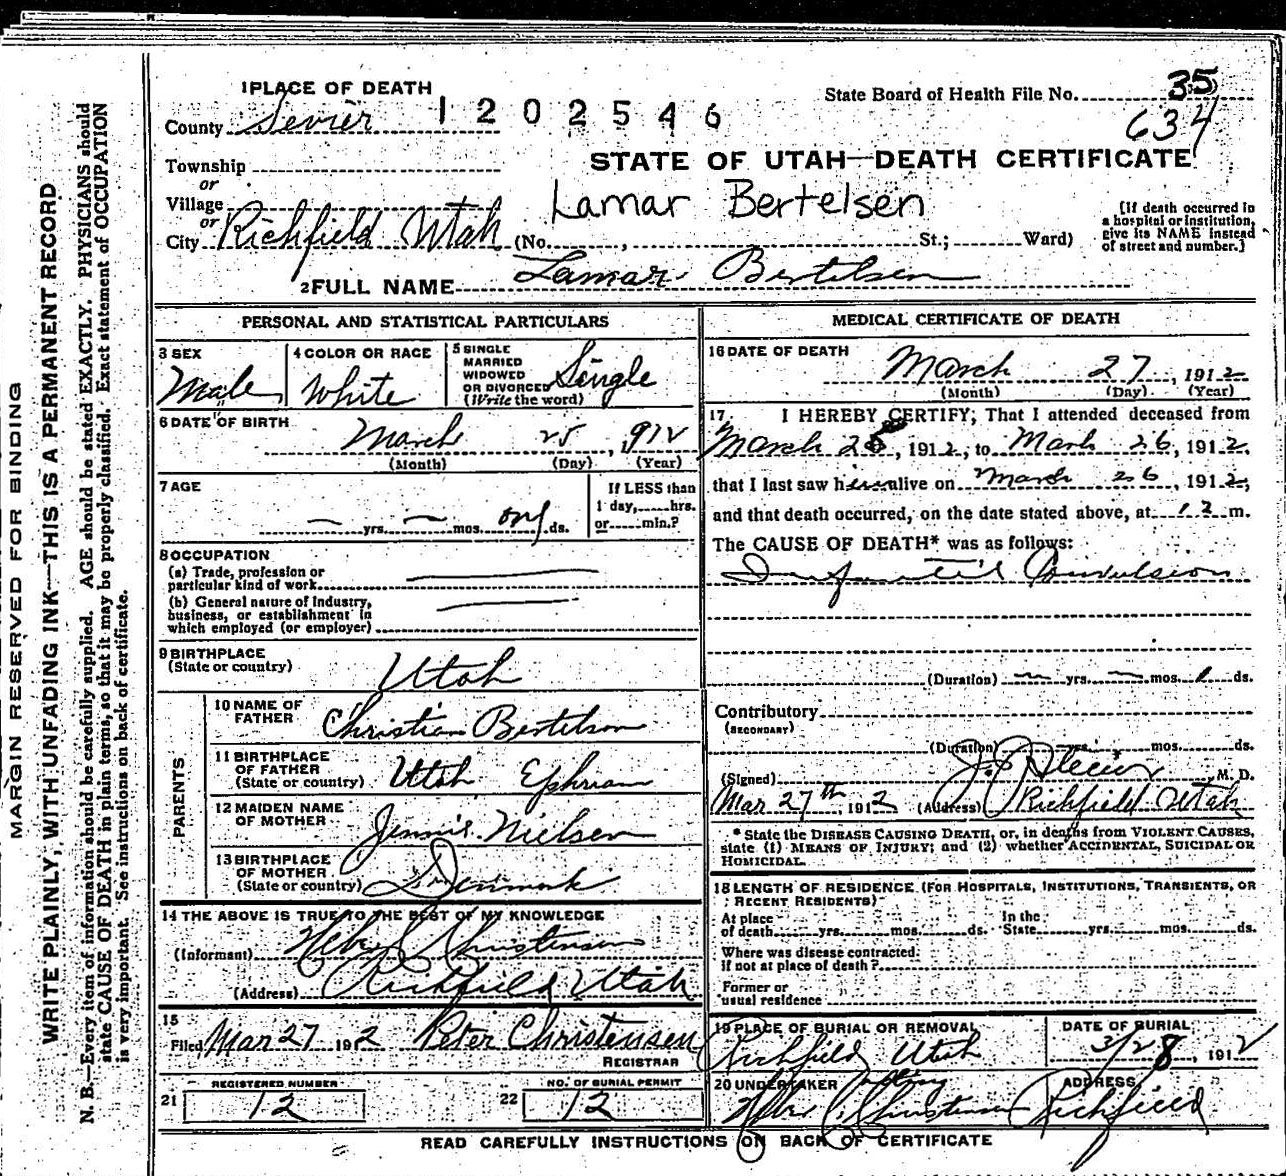 1 PLACE OF DEATH
County Sevier
1 2 0 2 5 4 6
State Board of Health File No. 35
634
Township
or
Village
or
City Richfield Utah (No. , St.; Ward)
STATE OF UTAH—DEATH CERTIFICATE
Lamar Bertelsen
[If death occurred in
a hospital or institution,
give its NAME instead
of street and number.]
2 FULL NAME Lamar Bertelsen
PERSONAL AND STATISTICAL PARTICULARS
3 SEX
Male
4 COLOR OR RACE
White
5 SINGLE
MARRIED
WIDOWED
OR DIVORCED
(Write the word)
Single
6 DATE OF BIRTH
March 25, 1912
(Month) (Day) (Year)
7 AGE
— yrs. — mos. ds.
If LESS than
1 day, hrs.
or min.?
8 OCCUPATION
(a) Trade, profession or
particular kind of work
(b) General nature of industry,
business, or establishment in
which employed (or employer)
9 BIRTHPLACE
(State or country)
Utah
PARENTS
10 NAME OF
FATHER
Christian Bertelson
11 BIRTHPLACE
OF FATHER
(State or country)
Utah Ephriam
12 MAIDEN NAME
OF MOTHER
Jennie Nielsen
13 BIRTHPLACE
OF MOTHER
(State or country)
Denmark
14 THE ABOVE IS TRUE TO THE BEST OF MY KNOWLEDGE
(Informant) Heber C Christensen
(Address) Richfield Utah
15
Filed Mar 27 1912 Peter Christensen
REGISTRAR
21
REGISTERED NUMBER
12
22
NO. OF BURIAL PERMIT
12
MEDICAL CERTIFICATE OF DEATH
16 DATE OF DEATH
March 27, 1912
(Month) (Day) (Year)
17 I HEREBY CERTIFY, That I attended deceased from
March 25, 1912, to March 26, 1912,
that I last saw him alive on March 26, 1912,
and that death occurred, on the date stated above, at 12 m.
The CAUSE OF DEATH* was as follows:
Infantil Convulsion
(Duration) — yrs. — mos. 1 ds.
Contributory
(SECONDARY)
(Duration) yrs. mos. ds.
(Signed) M. D.
Mar 27th, 1912 (Address) Richfield Utah
* State the DISEASE CAUSING DEATH, or, in deaths from VIOLENT CAUSES,
state (1) MEANS OF INJURY; and (2) whether ACCIDENTAL, SUICIDAL OR
HOMICIDAL.
18 LENGTH OF RESIDENCE (FOR HOSPITALS, INSTITUTIONS, TRANSIENTS, OR
RECENT RESIDENTS)
At place
of death yrs. mos. ds.
In the
State yrs. mos. ds.
Where was disease contracted
if not at place of death?
Former or
usual residence
19 PLACE OF BURIAL OR REMOVAL
Richfield Utah
DATE OF BURIAL
3/28, 1912
20 UNDERTAKER
Heber C Christensen
ADDRESS
Richfield
READ CAREFULLY INSTRUCTIONS ON BACK OF CERTIFICATE
MARGIN RESERVED FOR BINDING
WRITE PLAINLY, WITH UNFADING INK—THIS IS A PERMANENT RECORD
N. B.—Every item of information should be carefully supplied. AGE should be stated EXACTLY. PHYSICIANS should
state CAUSE OF DEATH in plain terms, so that it may be properly classified. Exact statement of OCCUPATION
is very important. See instructions on back of certificate.